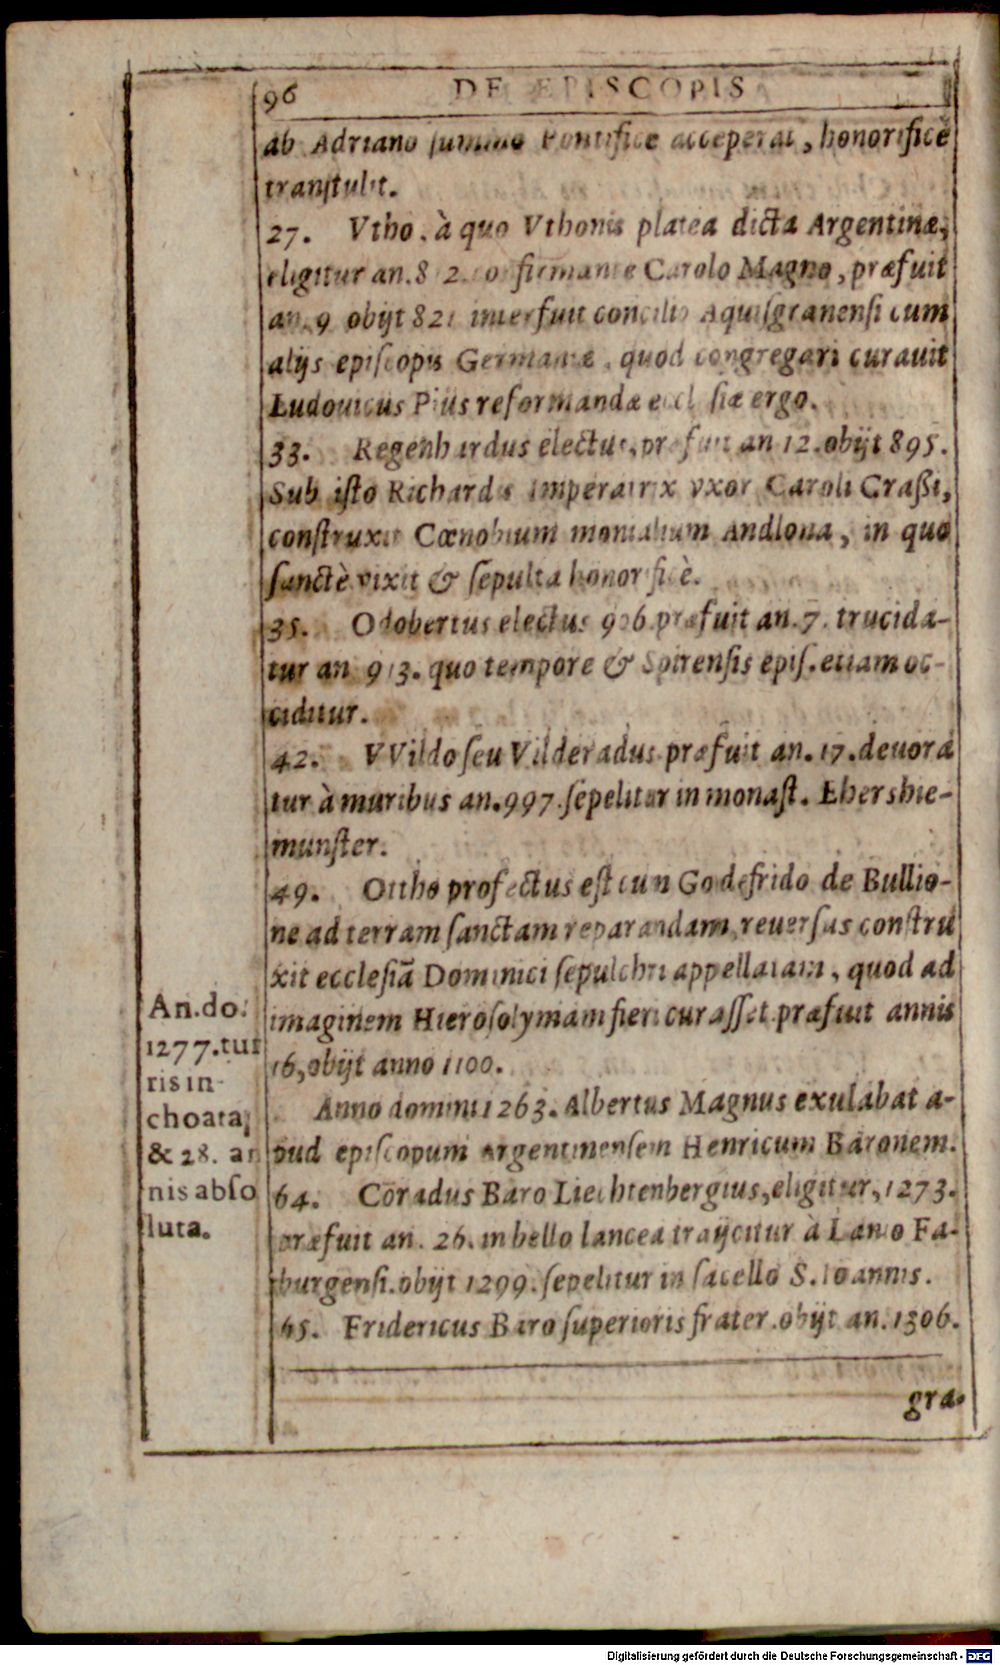 96 DE EPISCOPIS
ab Adriano summo Pontifice acceperat, honorificè
transtulit.
27. Vtho. à quo Vthonis platea dicta Argentinæ,
eligitur an. 8 2. confirmante Carolo Magno, præfuit
an. 9 obijt 821 interfuit concilio Aquisgranensi cum
alijs episcopis Germaniæ, quod congregari curauit
Ludouicus Pius reformandæ ecclesiæ ergo.
33. Regenhardus electus, præfuit an 12. obijt 895.
Sub isto Richardis Imperatrix vxor Caroli Craßi,
construxit Cœnobium monialium Andloua, in quo
sanctè vixit & sepulta honorificè.
35. Odobertus electus 906. præfuit an. 7. trucida-
tur an 913. quo tempore & Spirensis epis. etiam oc-
ciditur.
42. VVildo seu Vilderadus præfuit an. 17. deuora
tur à muribus an. 997. sepelitur in monast. Ebershie-
munster.
49. Ottho profectus est cum Godefrido de Bullio-
ne ad terram sanctam reparandam, reuersus constru
xit ecclesiã Dominici sepulchri appellatam, quod ad
imaginem Hierosolymam fieri curasset. præfuit annis
16, obijt anno 1100.
Anno domini 1263. Albertus Magnus exulabat a-
pud episcopum Argentinensem Henricum Baronem.
64. Coradus Baro Liechtenbergius, eligitur, 1273.
præfuit an. 26. in bello lancea traijcitur à Lanio Fa-
burgensi. obijt 1299. sepelitur in sacello S. Ioannis.
65. Fridericus Baro superioris frater. obijt an. 1306.
gra-
An. do.
1277. tur
ris in-
choata,
& 28. an
nis abso
luta.
Digitalisierung gefördert durch die Deutsche Forschungsgemeinschaft - DFG